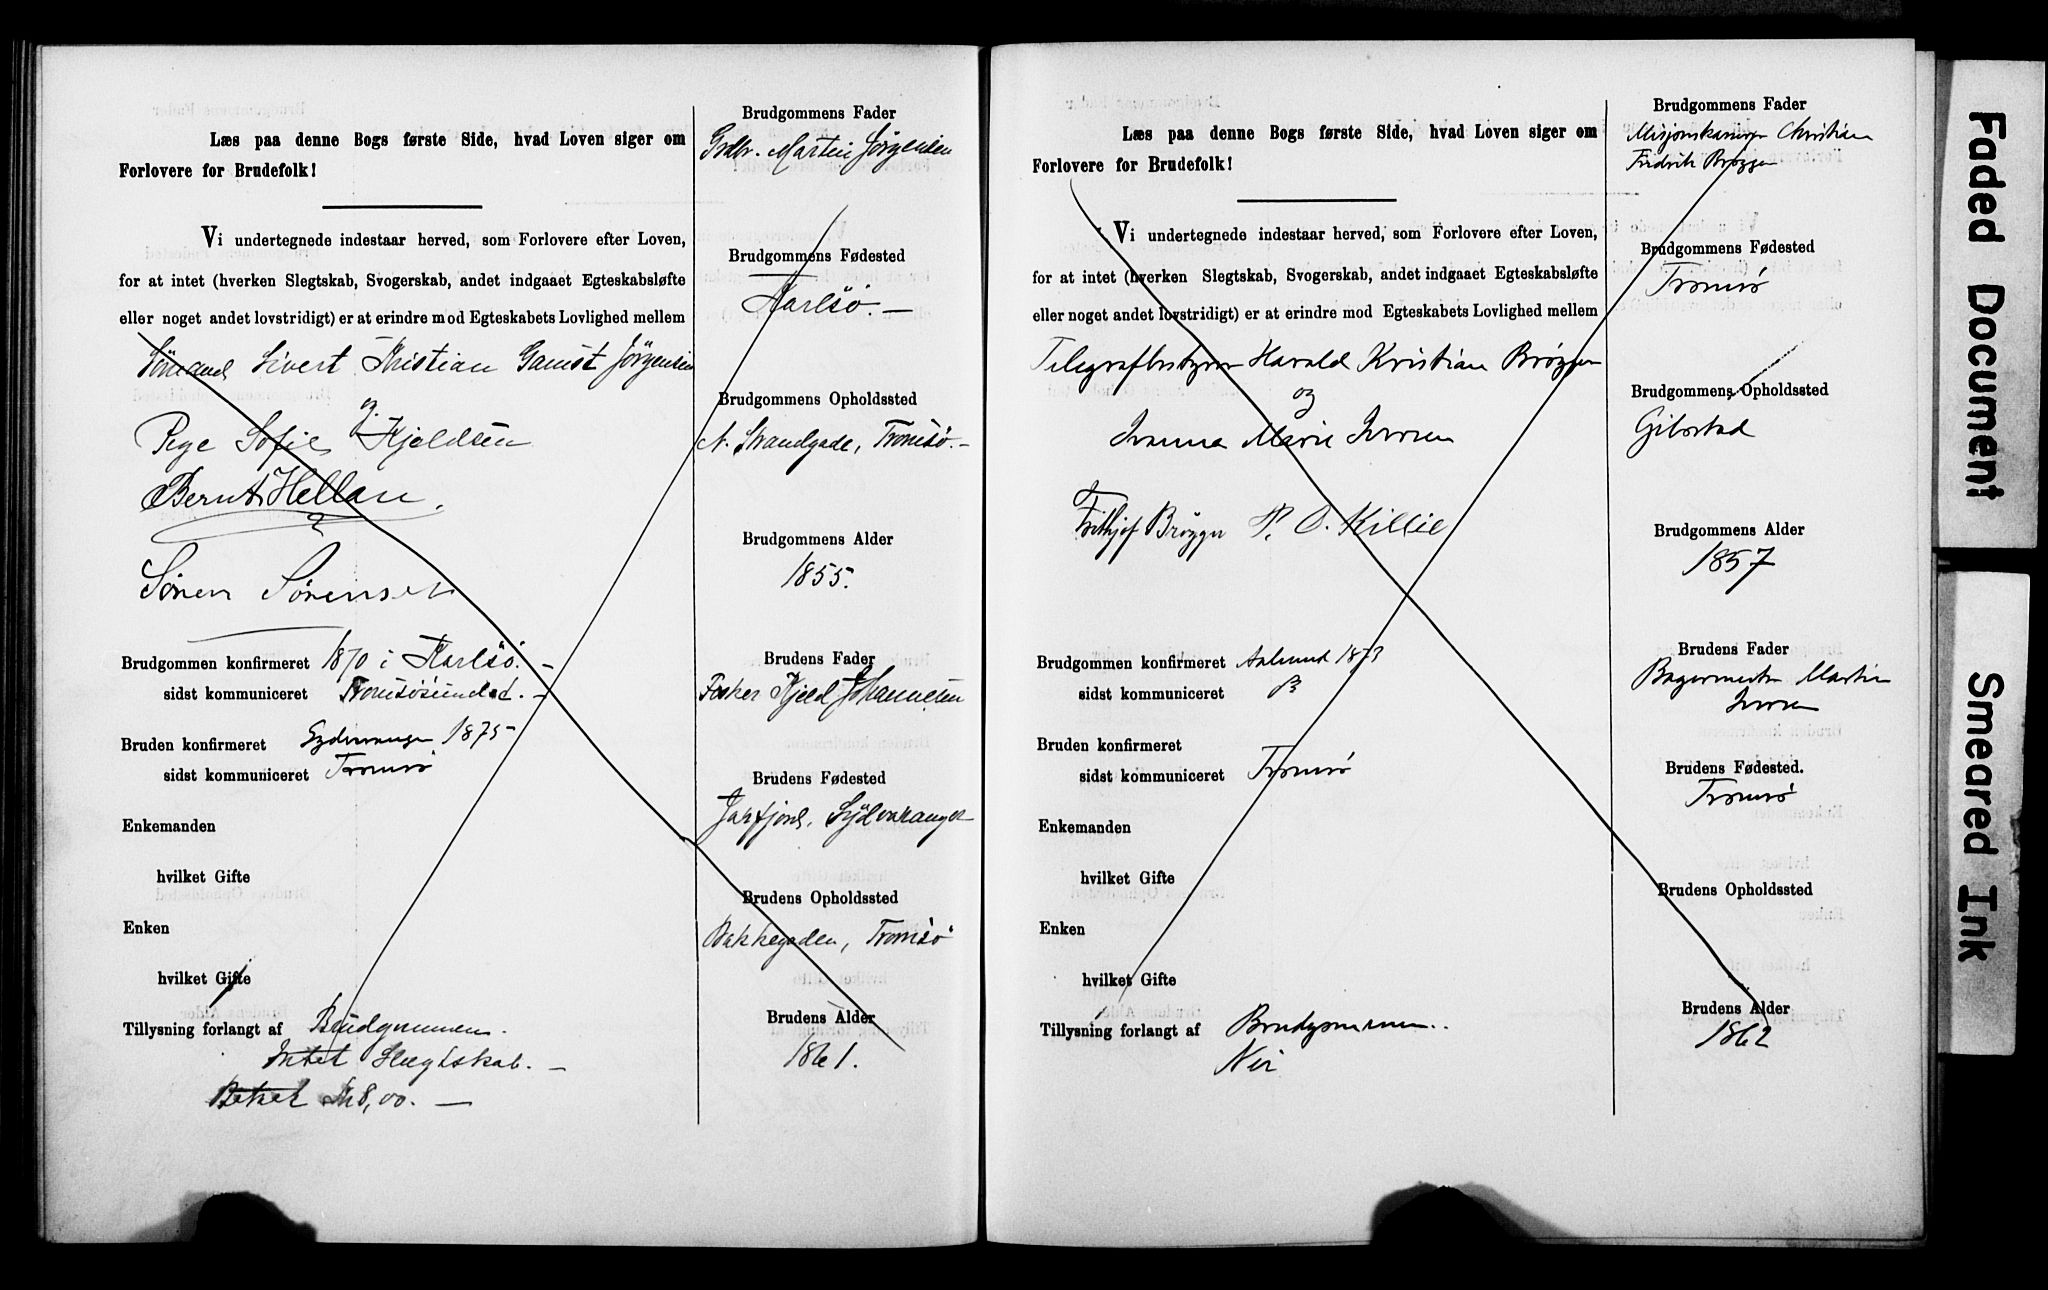 Læs paa denne Bogs første Side, hvad Loven siger om
Forlovere for Brudefolk!
Vi undertegnede indestaar herved, som Forlovere efter Loven,
for at intet (hverken Slegtskab, Svogerskab, andet indgaaet Egteskabsløfte
eller noget andet lovstridigt) er at erindre mod Egteskabets Lovlighed mellem
Sömand Sivert Kristian Gamst Jörgensen
og
Pege Sofie Kjeldsen
Bernt Hellan
Søren Sørensen
Brudgommen konfirmeret 1870 i Karlsö. -
sidst kommuniceret Tromsösundet. -
Bruden konfirmeret Sydvaranger 1875
sidst kommuniceret Tromsö
Enkemanden
hvilket Gifte
Enken
hvilket Gifte
Tillysning forlangt af Brudgommen.
Intet Slægtskab. -
Betalt Kr 8,00. -
Brudgommens Fader
Grdbr. Martin Jörgensen
Brudgommens Fødested
Karlsö. -
Brudgommens Opholdssted
N. Strandgade, Tromsö. -
Brudgommens Alder
1855.
Brudens Fader
Fisker Kjeld Johannesen
Brudens Fødested
Jarfjord, Sydvaranger
Brudens Opholdssted
Bakkegaden, Tromsö
Brudens Alder
1861.
Læs paa denne Bogs første Side, hvad Loven siger om
Forlovere for Brudefolk!
Vi undertegnede indestaar herved, som Forlovere efter Loven,
for at intet (hverken Slegtskab, Svogerskab, andet indgaaet Egteskabsløfte
eller noget andet lovstridigt) er at erindre mod Egteskabets Lovlighed mellem
Telegrafbestyrer Harald Kristian Brøgger
og
Marie Iversen
Frithjof Brøgger P. O. Killie
Brudgommen konfirmeret Aalesund 1873
sidst kommuniceret
Bruden konfirmeret
sidst kommuniceret Tromsø
Enkemanden
hvilket Gifte
Enken
hvilket Gifte
Tillysning forlangt af Brudgommen.
Nei
Brudgommens Fader
Christian
Fredrik Brøgger
Brudgommens Fødested
Tromsø
Brudgommens Opholdssted
Gibostad
Brudgommens Alder
1857
Brudens Fader
Bagermester Martin
Iversen
Brudens Fødested.
Tromsø
Brudens Opholdssted
Brudens Alder
1862
Faded Document
Smeared Ink